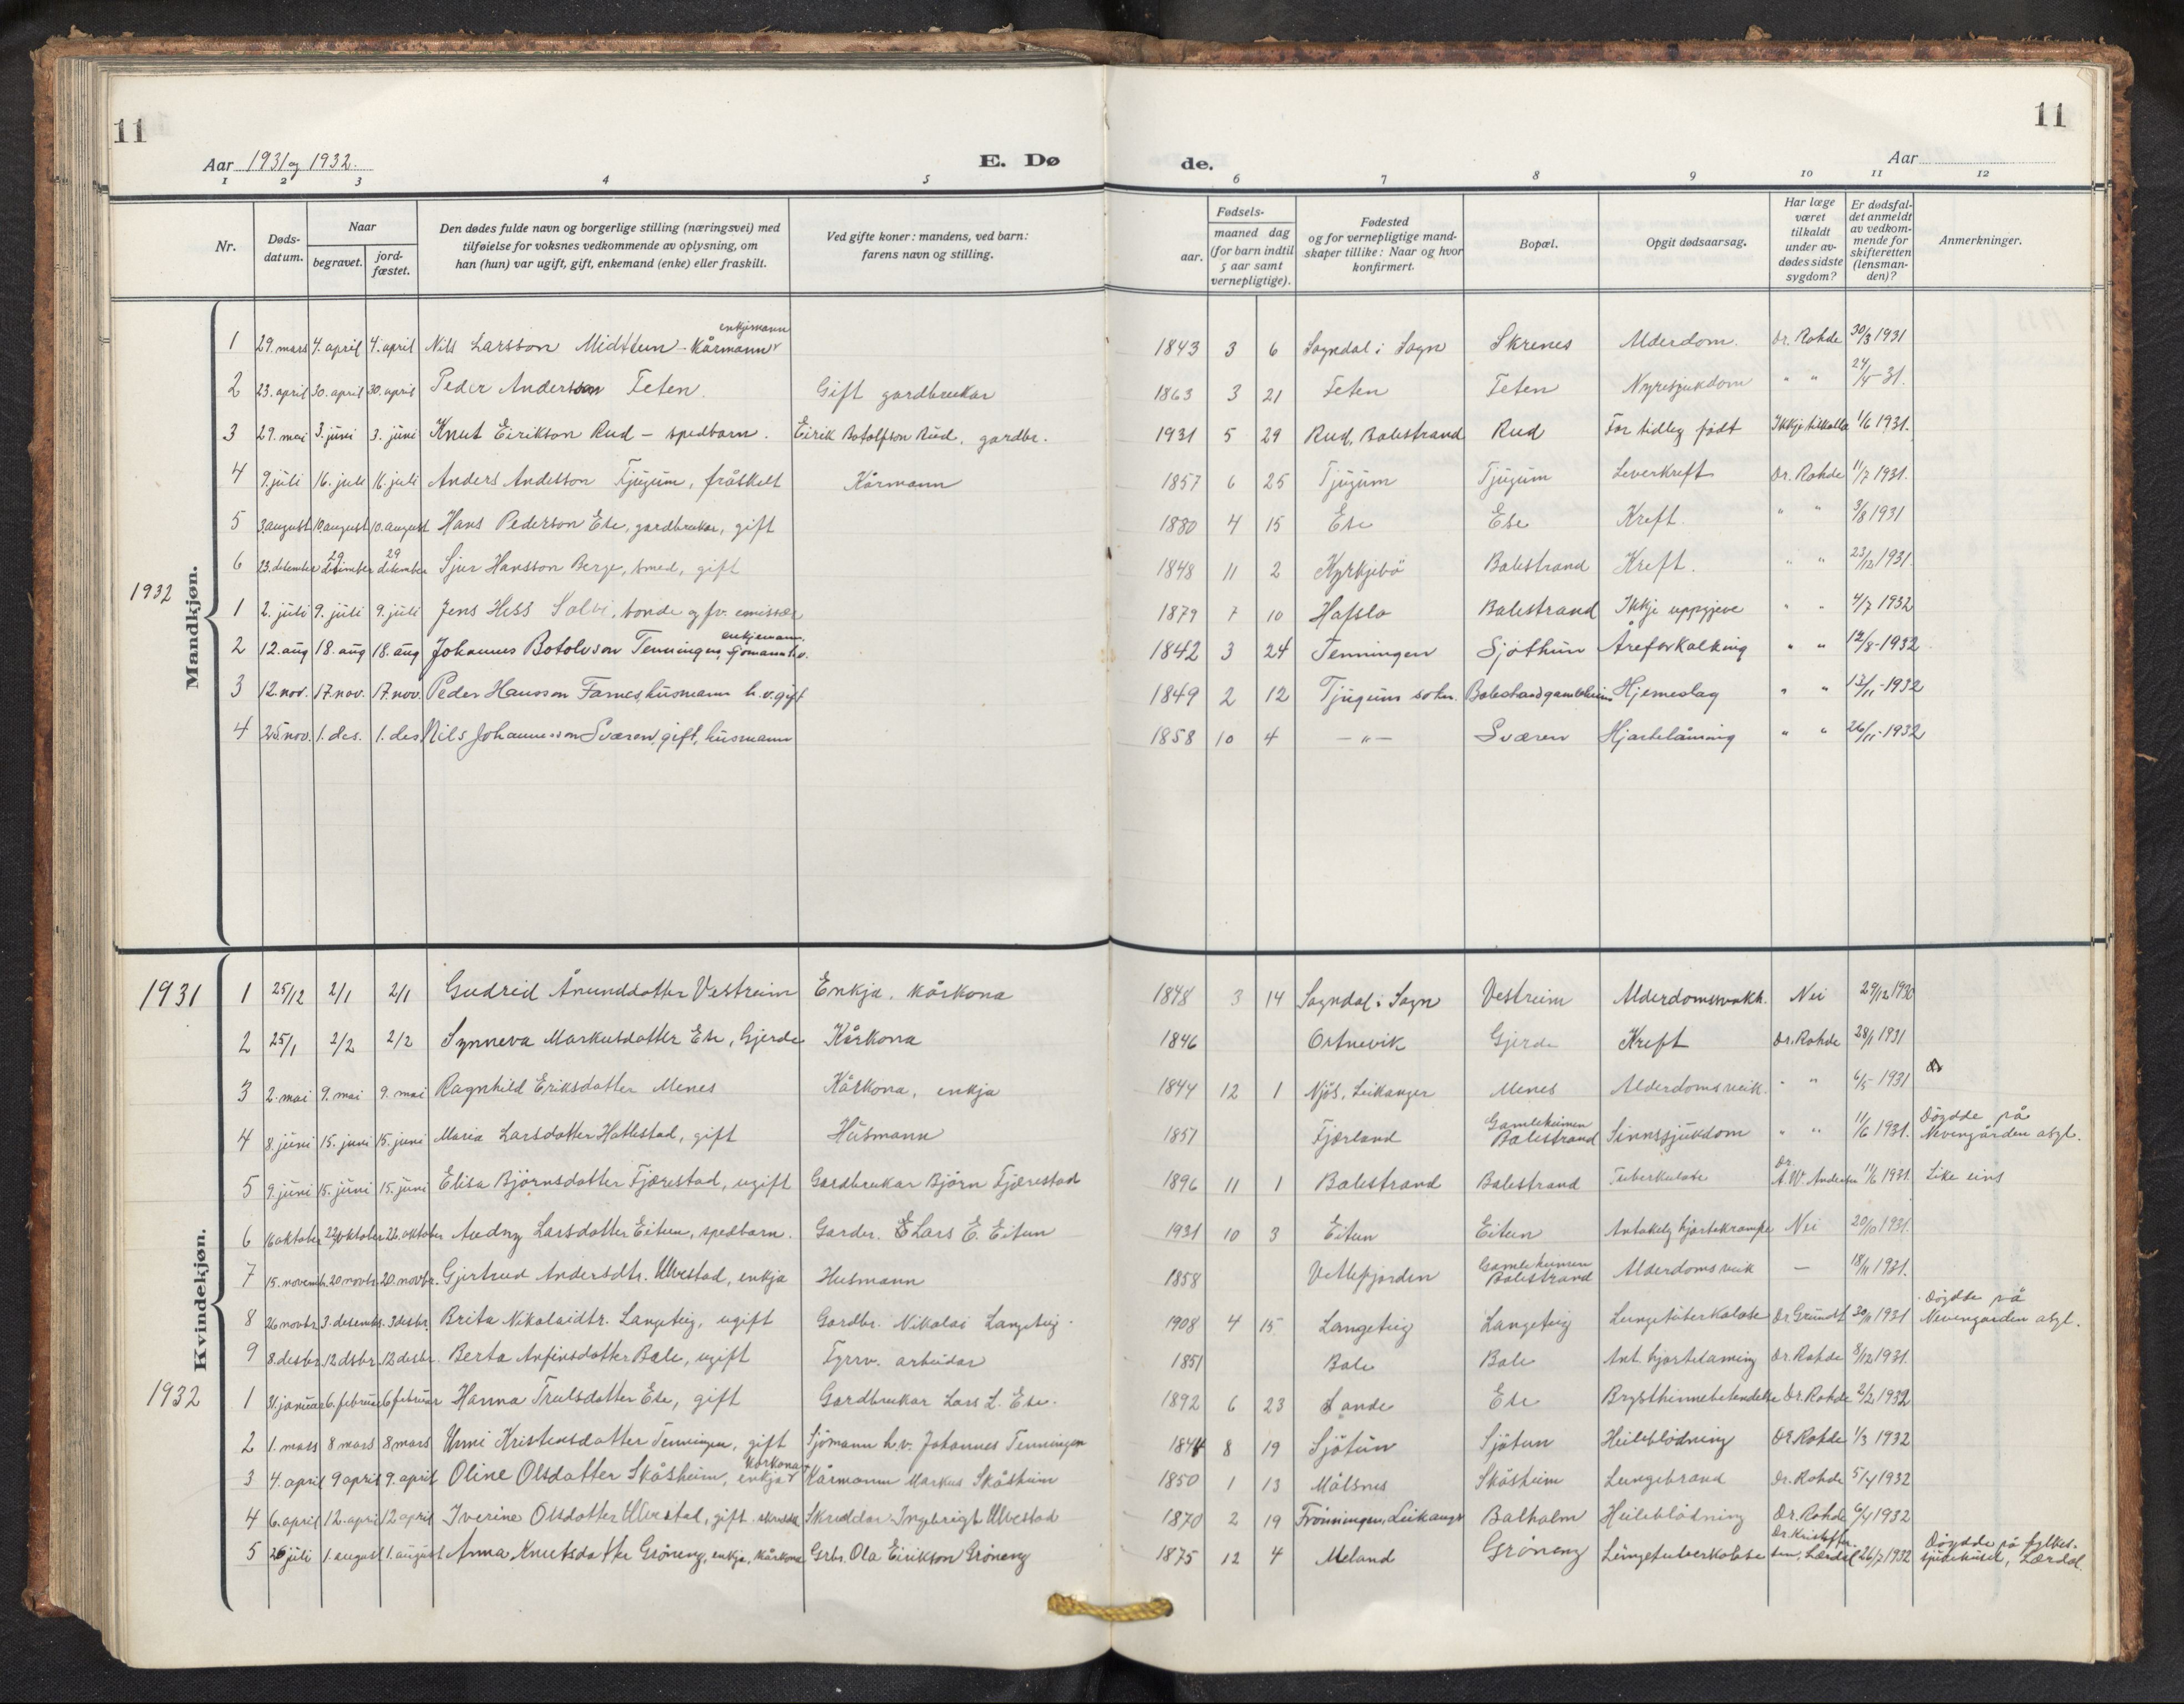 11
11
Aar 1931 og 1932.
E. Dø
de.
Aar
1 2 3 4 5 6 7 8 9 10 11 12
Nr. Døds-datum. Naar begravet. jord-fæstet. Den dødes fulde navn og borgerlige stilling (næringsvei) med tilføielse for voksnes vedkommende av oplysning, om han (hun) var ugift, gift, enkemand (enke) eller fraskilt. Ved gifte koner: mandens, ved barn: farens navn og stilling. Fødsels- aar. maaned dag (for barn indtil 5 aar samt vernepligtige). Fødested og for vernepligtige mandskaper tillike: Naar og hvor konfirmert. Bopæl. Opgit dødsaarsag. Har læge været tilkaldt under avdødes sidste sygdom? Er dødsfaldet anmeldt av vedkommende for skifteretten (lensmanden)? Anmerkninger.
Mandkjøn.
1 29. mars 4. april 4. april Nils Larsson Midttun - Kårmann enkjemann 1843 3 6 Sogndal i Sogn Skrenes Alderdom. Dr. Rohde 30/3 1931
2 23. april 30. april 30. april Peder Andersson Feten. Gift gardbrukar 1863 3 21 Feten Feten Nyresjukdom " " 24/4 - 31.
3 29. mai 3. juni 3. juni Knut Eirikson Rud - spedbarn. Eirik Botolfson Rud, gardbr. 1931 5 29 Rud, Balestrand Rud For tidleg født Ikkje tilkalla 1/6 1931.
4 9. juli 16. juli 16. juli Anders Andesson Tjugum, fråskelt Kårmann 1857 6 25 Tjugum Tjugum Leverkreft Dr. Rohde 11/7 1931.
5 3. august 10. august 10. august Hans Pederson Ese, gardbrukar, gift 1880 4 15 Ese Ese Kreft. " " 3/8 1931
6 23. desember 29 desember 29 desember Sjur Hansson Berge, smed, gift 1848 11 2 Kyrkjebö Balestrand Kreft. " " 23/12 1931.
1932 1 2. juli 9. juli 9. juli Jens Hess Solvi, bonde og fv. emissær 1879 7 10 Hafslo Balestrand Ikkje uppgjeve " " 4/7 1932
2 12. aug 18. aug 18. aug Johannes Botolvson Tenningen, sjömann h.v. enkjemann. 1842 3 24 Tenningen Sjöthun Åreforkalking " " 12/8-1932
3 12. nov. 17. nov. 17. nov. Peder Hansson Farnes, husmann h.v. gift 1849 2 12 Tjugum sokn. Balestrand gamleheim Hjerneslag " " 13/11-1932
4 25 nov. 1. des. 1. des Nils Johannesson Sværen, gift, husmann 1858 10 4 - " - Sværen Hjartelåming " " 26/11-1932
Kvindekjøn.
1931 1 25/12 2/1 2/1 Gudrid Ånunddotter Vestreim Enkja. kårkona 1848 3 14 Sogndal i Sogn Vestreim Alderdomssvakh. Nei 29/12 1930
2 25/1 2/2 2/2 Synneva Markusdotter Ese, Gjerde Kårkona 1846 Ortnevik Gjerde Kreft Dr. Rohde 28/1 1931
3 2. mai 9. mai 9. mai Ragnhild Eriksdotter Menes Kårkona, enkja 1844 12 1 Njös, Leikanger Menes Alderdomsveik. " " 6/5 - 1931
4 8. juni 15. juni 15. juni Maria Larsdotter Hatlestad, gift Husmann 1857 Fjærland Gamleheimen Balestrand Sinnssjukdom " " 11/6 1931. Döydde på Nevengården asyl.
5 9. juni 15. juni 15. juni Elisa Björnsdotter Fjærestad, ugift Gardbrukar Björn Fjærestad 1896 11 1 Balestrand Balestrand Tuberkulose Dr. A.W. Andersen 11/6 1931. Like eins
6 16 oktober 22 oktober 22. oktober Audny Larsdotter Eitun, spedbarn. Gardbr. Lars E. Eitun 1931 10 3 Eitun Eitun Antakeleg hjartekrampe Nei 20/10 1931.
7 15. novemb. 20 novbr. 20. novbr. Gjertrud Andersdtr. Ulvestad, enkja Husmann 1858 Vetlefjorden Gamleheimen Balestrand Alderdomsveik - 18/11 1931.
8 26 novbr. 3. desemb. 3 desbr. Brita Nikolaidtr. Langeteig, ugift Gardbr. Nikolai Langeteig. 1908 4 15 Langeteig Langeteig Lungetuberkulose Dr Grundt 30/11 1931 Döydde på Nevengården asyl.
9 8. desbr. 12 dsbr. 12 desbr. Berta Anfinsdotter Bale, ugift Fyrrv. arbeidar 1851 Bale Bale Ant. hjartelaming Dr. Rohde 8/12 1931.
1932 1 31. januar 6. februar 6 februar Hanna Trulsdotter Ese, gift Gardbrukar Lars L. Ese. 1892 6 23 Lande Ese Brysthinnebetendelse Dr. Rohde 2/2 1932
2 1. mars 8 mars 8 mars Unni Kristensdotter Tenningen, gift Sjömann h.v. Johannes Tenningen 1844 8 19 Sjötun Sjötun Heileblödning Dr Rohde 1/3 1932
3 4. april 9 april 9. april Oline Olsdotter Skåsheim, enkja kårkona Kårmann Markus Skåsheim 1850 1 13 Målsnes Skåsheim Lungebrand Dr. Rohde 5/4 1932
4 6. april 12. april 12 april Iverine Olsdotter Ulvestad, gift Skreddar Ingebrigt Ulvestad 1870 2 19 Frönningen, Leikanger Balholm Heileblödning Dr. Rohde 6/4 1932
5 26 juli 1. august 1. august Anna Knutsdotter Gröneng, enkja, kårkona Grbr. Ola Eirikson Gröneng 1875 12 4 Meland Gröneng Lungetuberkulose Dr. Kristoffersen, Lærdal 26/7 1932 Döydde på fylkessjukehuset, Lærdal.